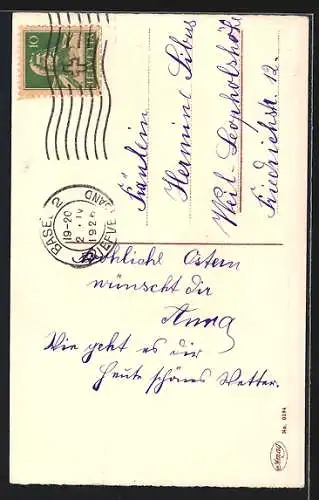 10
HELVETIA
BASEL 2
19-20
2. IV
1926
BRIEFVERSAND
Fräulein
Hermine Sibus
Weil-Leopoldshöhe
Friedrichstr. 12.
Fröhliche Ostern
wünscht dir
Anna
Wie geht es dir
heute schönes Wetter.
No. 0194